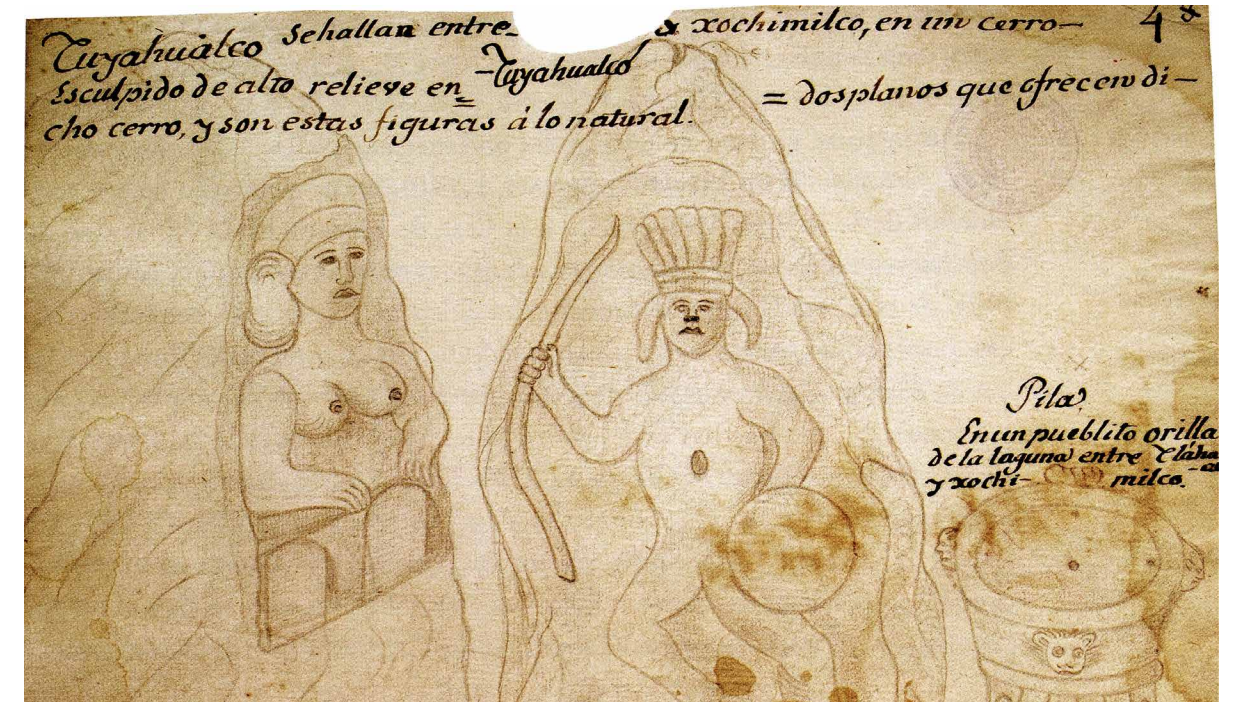 Tuyahualco Se hallan entre & xochimilco, en un cerro—
Esculpido de alto relieve en = Tuyahualco = dos planos que ofrecen di—
cho cerro, y son estas figuras á lo natural.
4
Pila
En un pueblito orilla
de la laguna entre Tláhu
y xochi— milco.